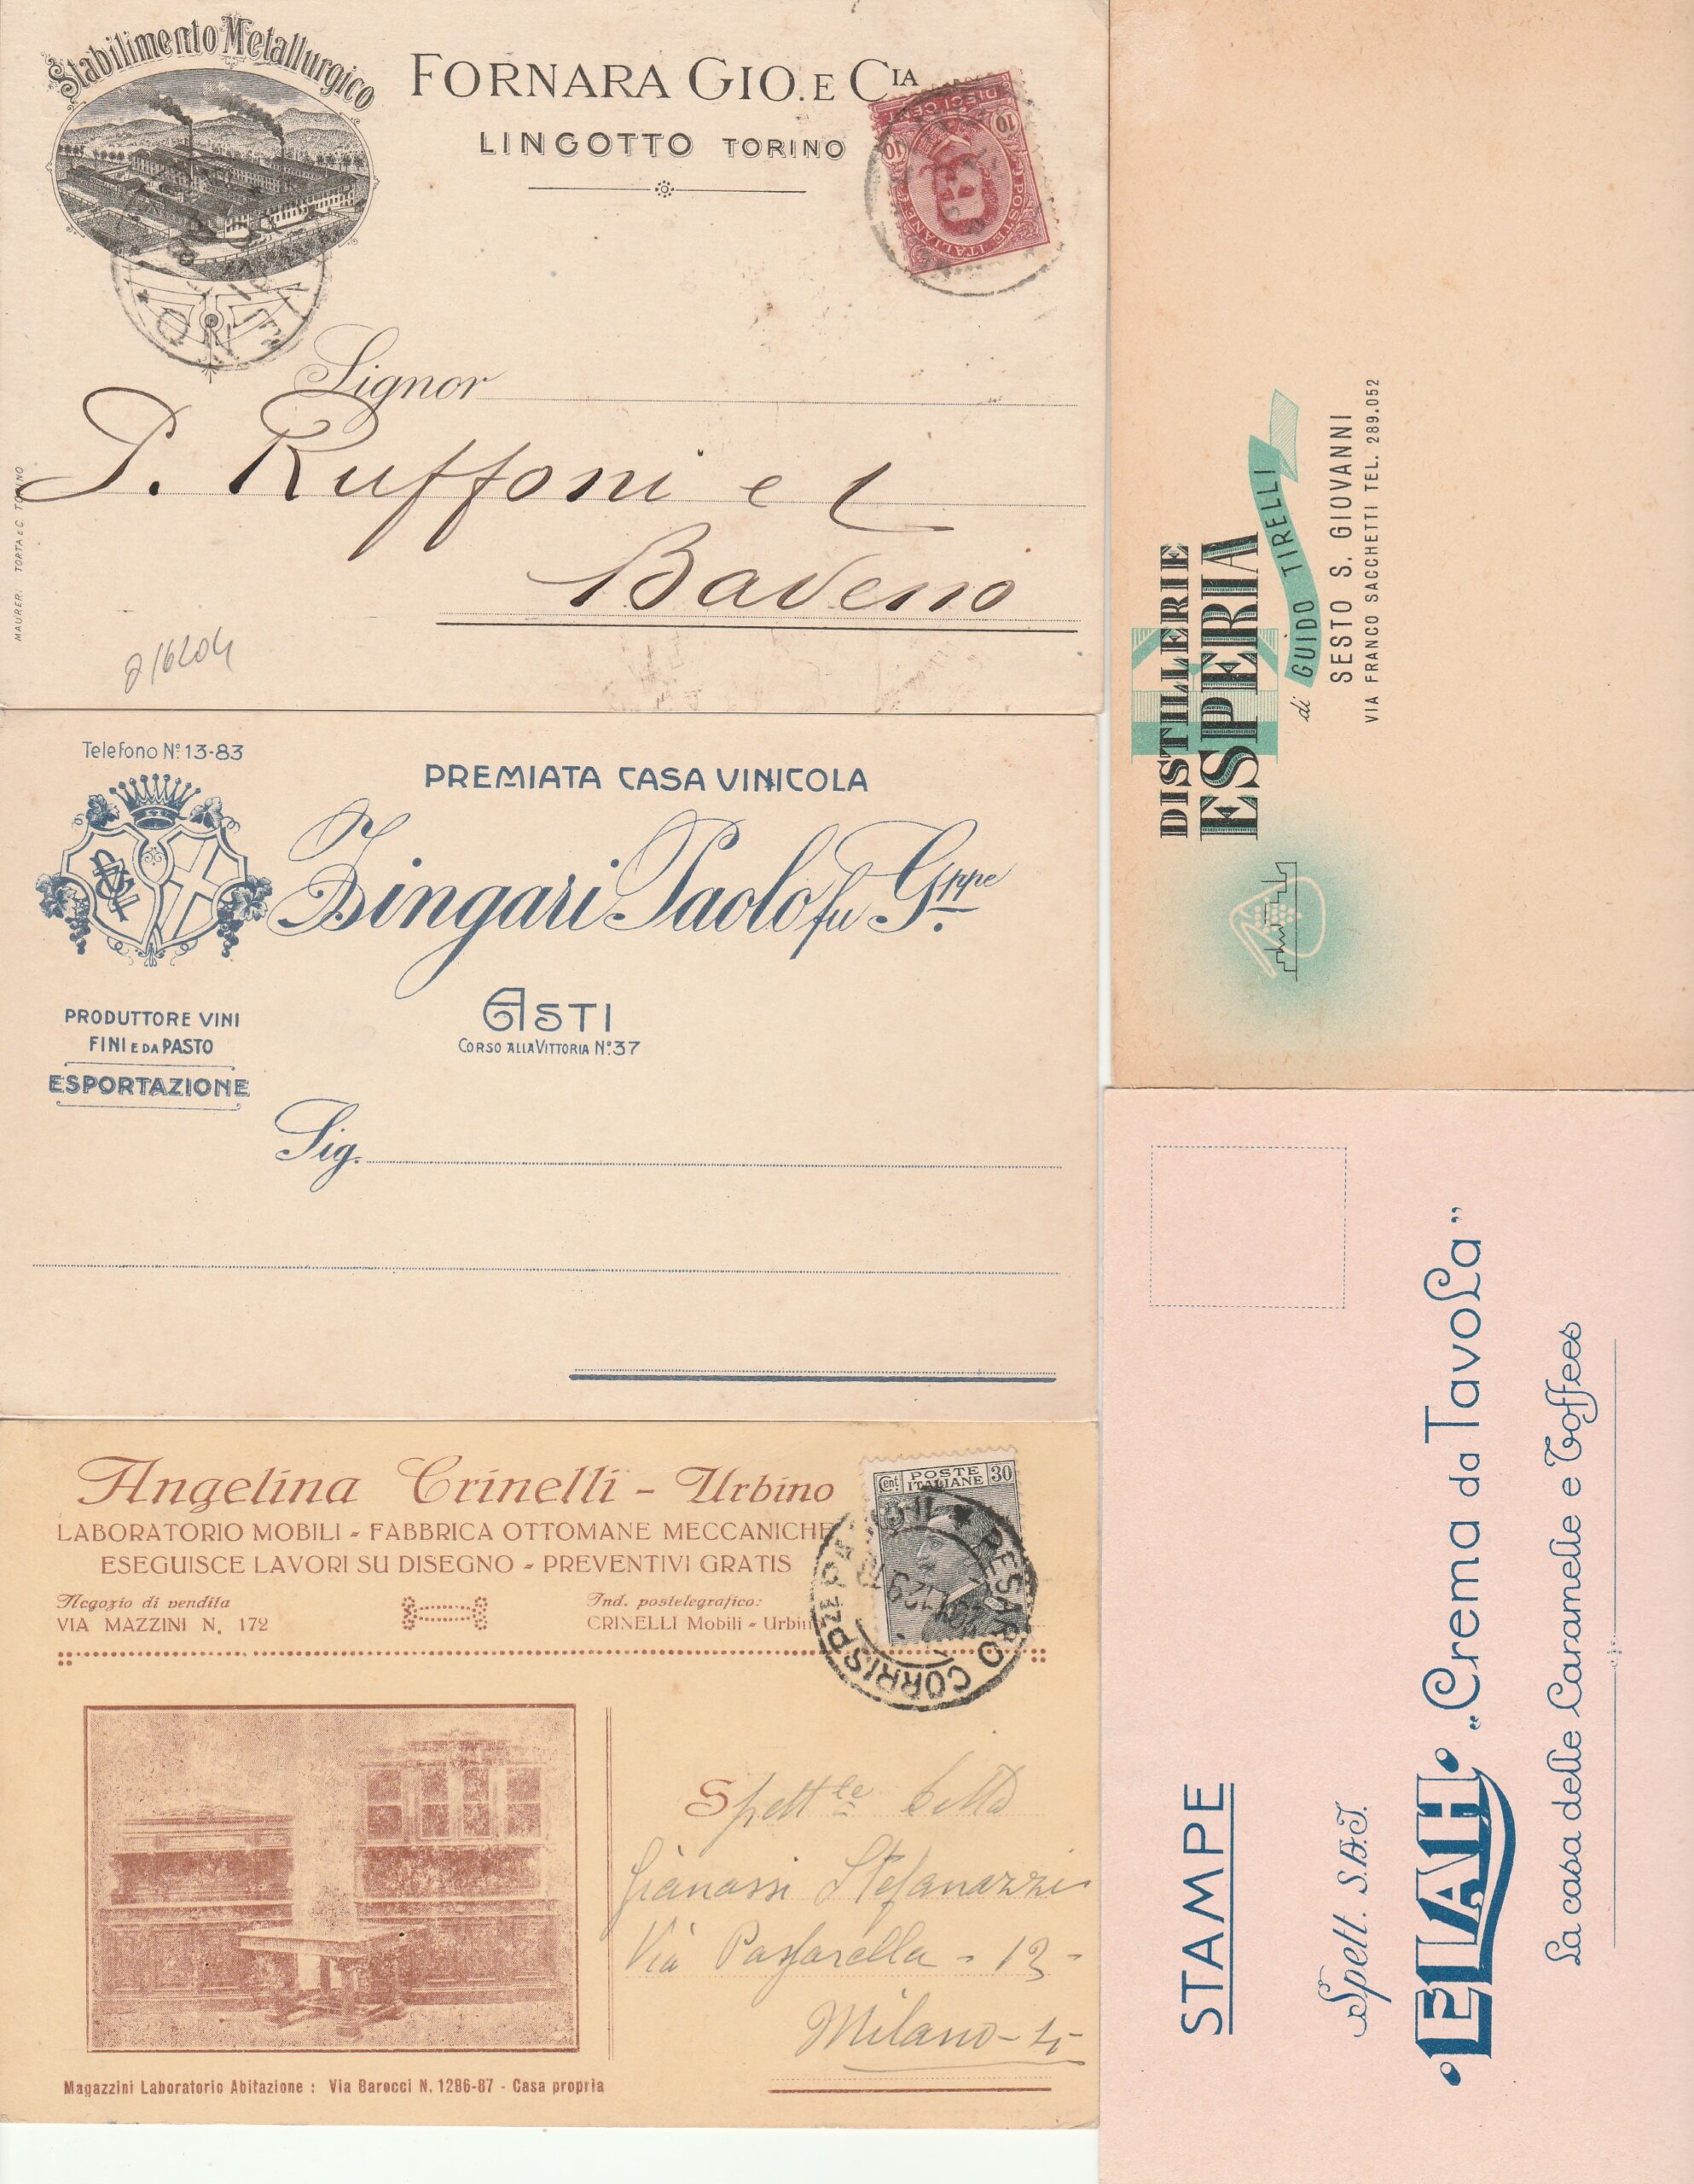 Stabilimento Metallurgico
FORNARA GIO. E CIA
LINGOTTO TORINO
DIECI CENT
10 10
POSTE ITALIANE
Signor
P. Ruffoni e C
Baveno
MAURER. TORTA e C. TORINO
216204
Telefono No. 13-83
PREMIATA CASA VINICOLA
Zingari Paolo fu Gppe
ASTI
CORSO ALLA VITTORIA No. 37
PRODUTTORE VINI
FINI E DA PASTO
ESPORTAZIONE
Sig.
Angelina Crinelli - Urbino
LABORATORIO MOBILI - FABBRICA OTTOMANE MECCANICHE
ESEGUISCE LAVORI SU DISEGNO - PREVENTIVI GRATIS
Negozio di vendita
VIA MAZZINI N. 172
Ind. postelegrafico:
CRINELLI Mobili - Urbin
Cent. POSTE ITALIANE 30
PESARO CORRISPZE
Spettle Ditta
Gianassi Stefanazzi
Via Passarella - 13 -
Milano
Magazzini Laboratorio Abitazione : Via Barocci N. 1286-87 - Casa propria
DISTILLERIE
ESPERIA
di GUIDO TIRELLI
SESTO S. GIOVANNI
VIA FRANCO SACCHETTI TEL. 289.052
STAMPE
Spett. S.A.I.
ELAH „Crema da Tavola”
La casa delle Caramelle e Toffees